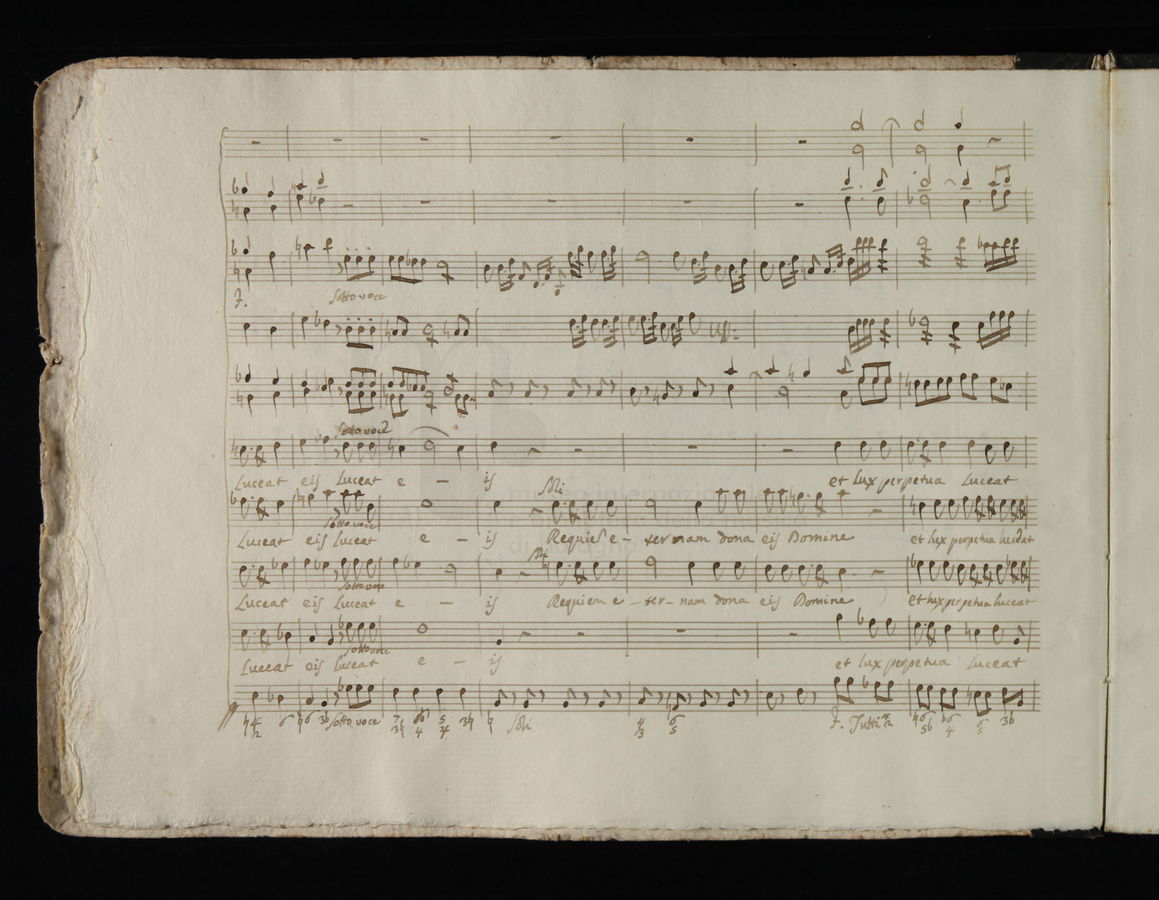 f.
Sotto voce
Sotto voce
Luceat eis Luceat e - is et lux perpetua Luceat
Soli
Sotto voce
Luceat eis Luceat e - is Requiem e - ternam dona eis Domine et lux perpetua luceat
Soli
Sotto voce
Luceat eis Luceat e - is Requiem e - ter - nam dona eis Domine et lux perpetua luceat
Sotto voce
Luceat eis Luceat e - is et lux perpetua Luceat
Sotto voce Soli f. Tutti